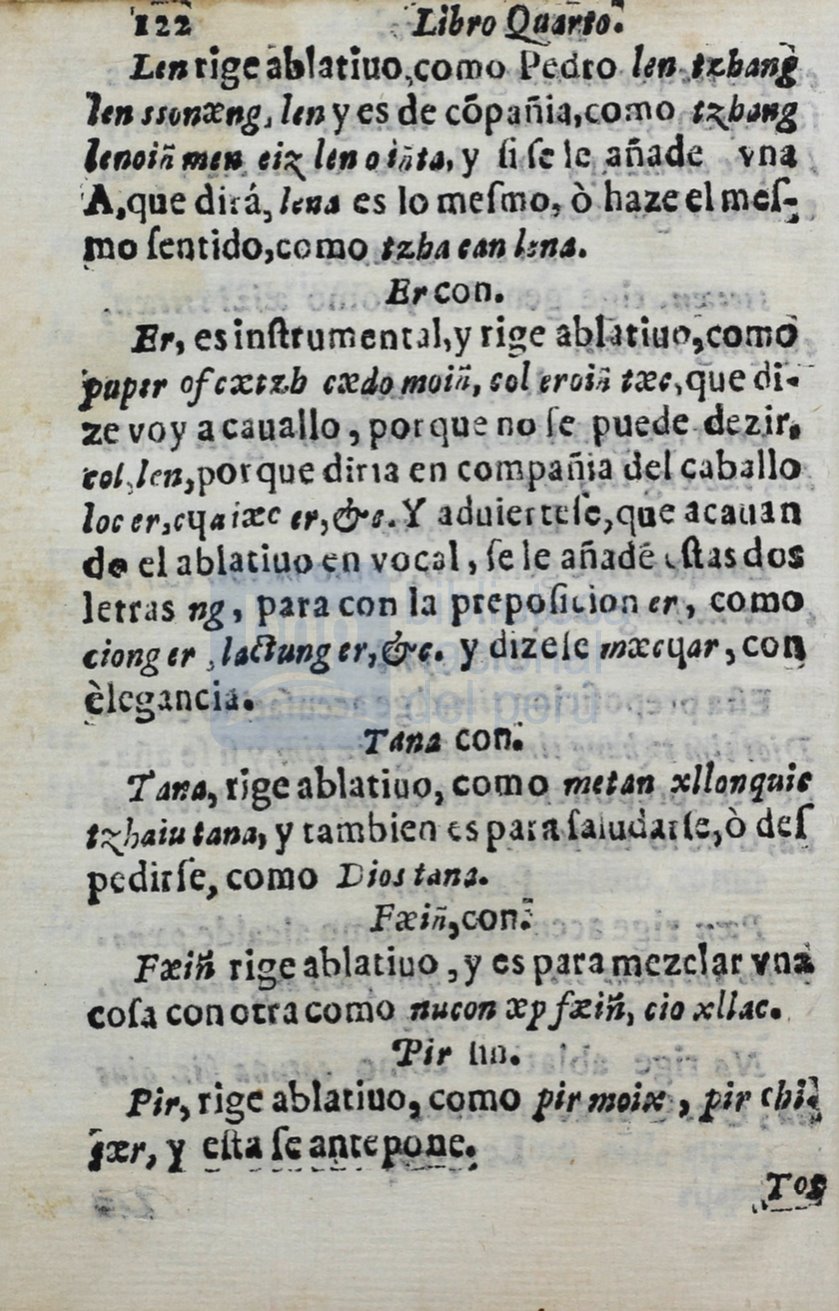 122 Libro Quarto.
Len rige ablatiuo, como Pedro len tzhang
len ssonæng, len y es de cõpañia, como tzhang
lenoiñ men eiz len o iñta, y si se le añade vna
A, que dirá, lena es lo mesmo, ò haze el mes-
mo sentido, como tzha ean lena.
Er con.
Er, es instrumental, y rige ablatiuo, como
puper ofcætzh cædo moiñ, col eroiñ tæc, que di-
ze voy a cauallo, porque no se puede dezir,
col, len, porque diria en compañia del caballo
loc er, cɥaiæc er, &c. Y aduiertese, que acauan
do el ablatiuo en vocal, se le añadē estas dos
letras ng, para con la preposicion er, como
ciong er, lactung er, &c. y dizese mæcɥar, con
èlegancia.
Tana con.
Tana, rige ablatiuo, como metan xllonquic
tzhaiu tana, y tambien es para saludarse, ò des
pedirse, como Dios tana.
Fæiñ, con.
Fæiñ rige ablatiuo, y es para mezclar vna
cosa con otra como nucon æp fæiñ, cio xllac.
Pir sin.
Pir, rige ablatiuo, como pir moix, pir chi-
çær, y esta se antepone.
Biblioteca
del perú